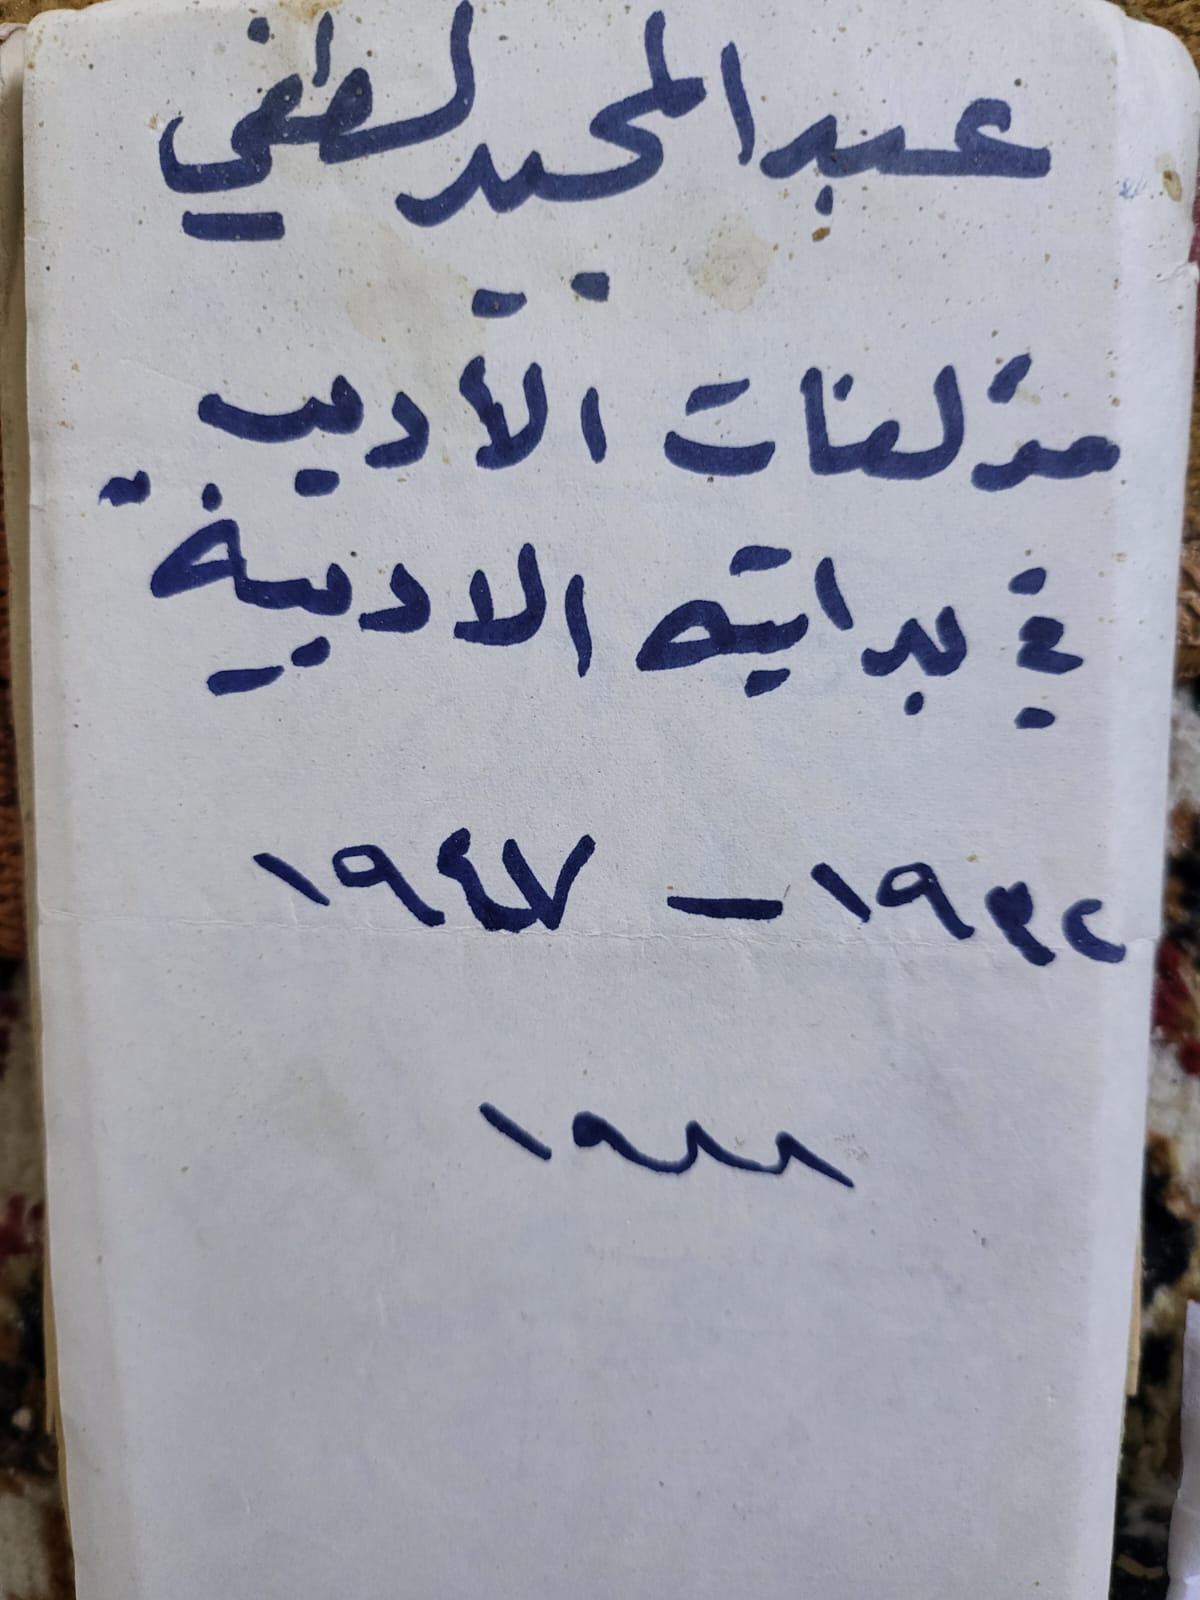 عبد المجيد لطفي
مؤلفات الأديب
في بدايته الادبية
١٩٣٢ – ١٩٤٧
١٩٨٨